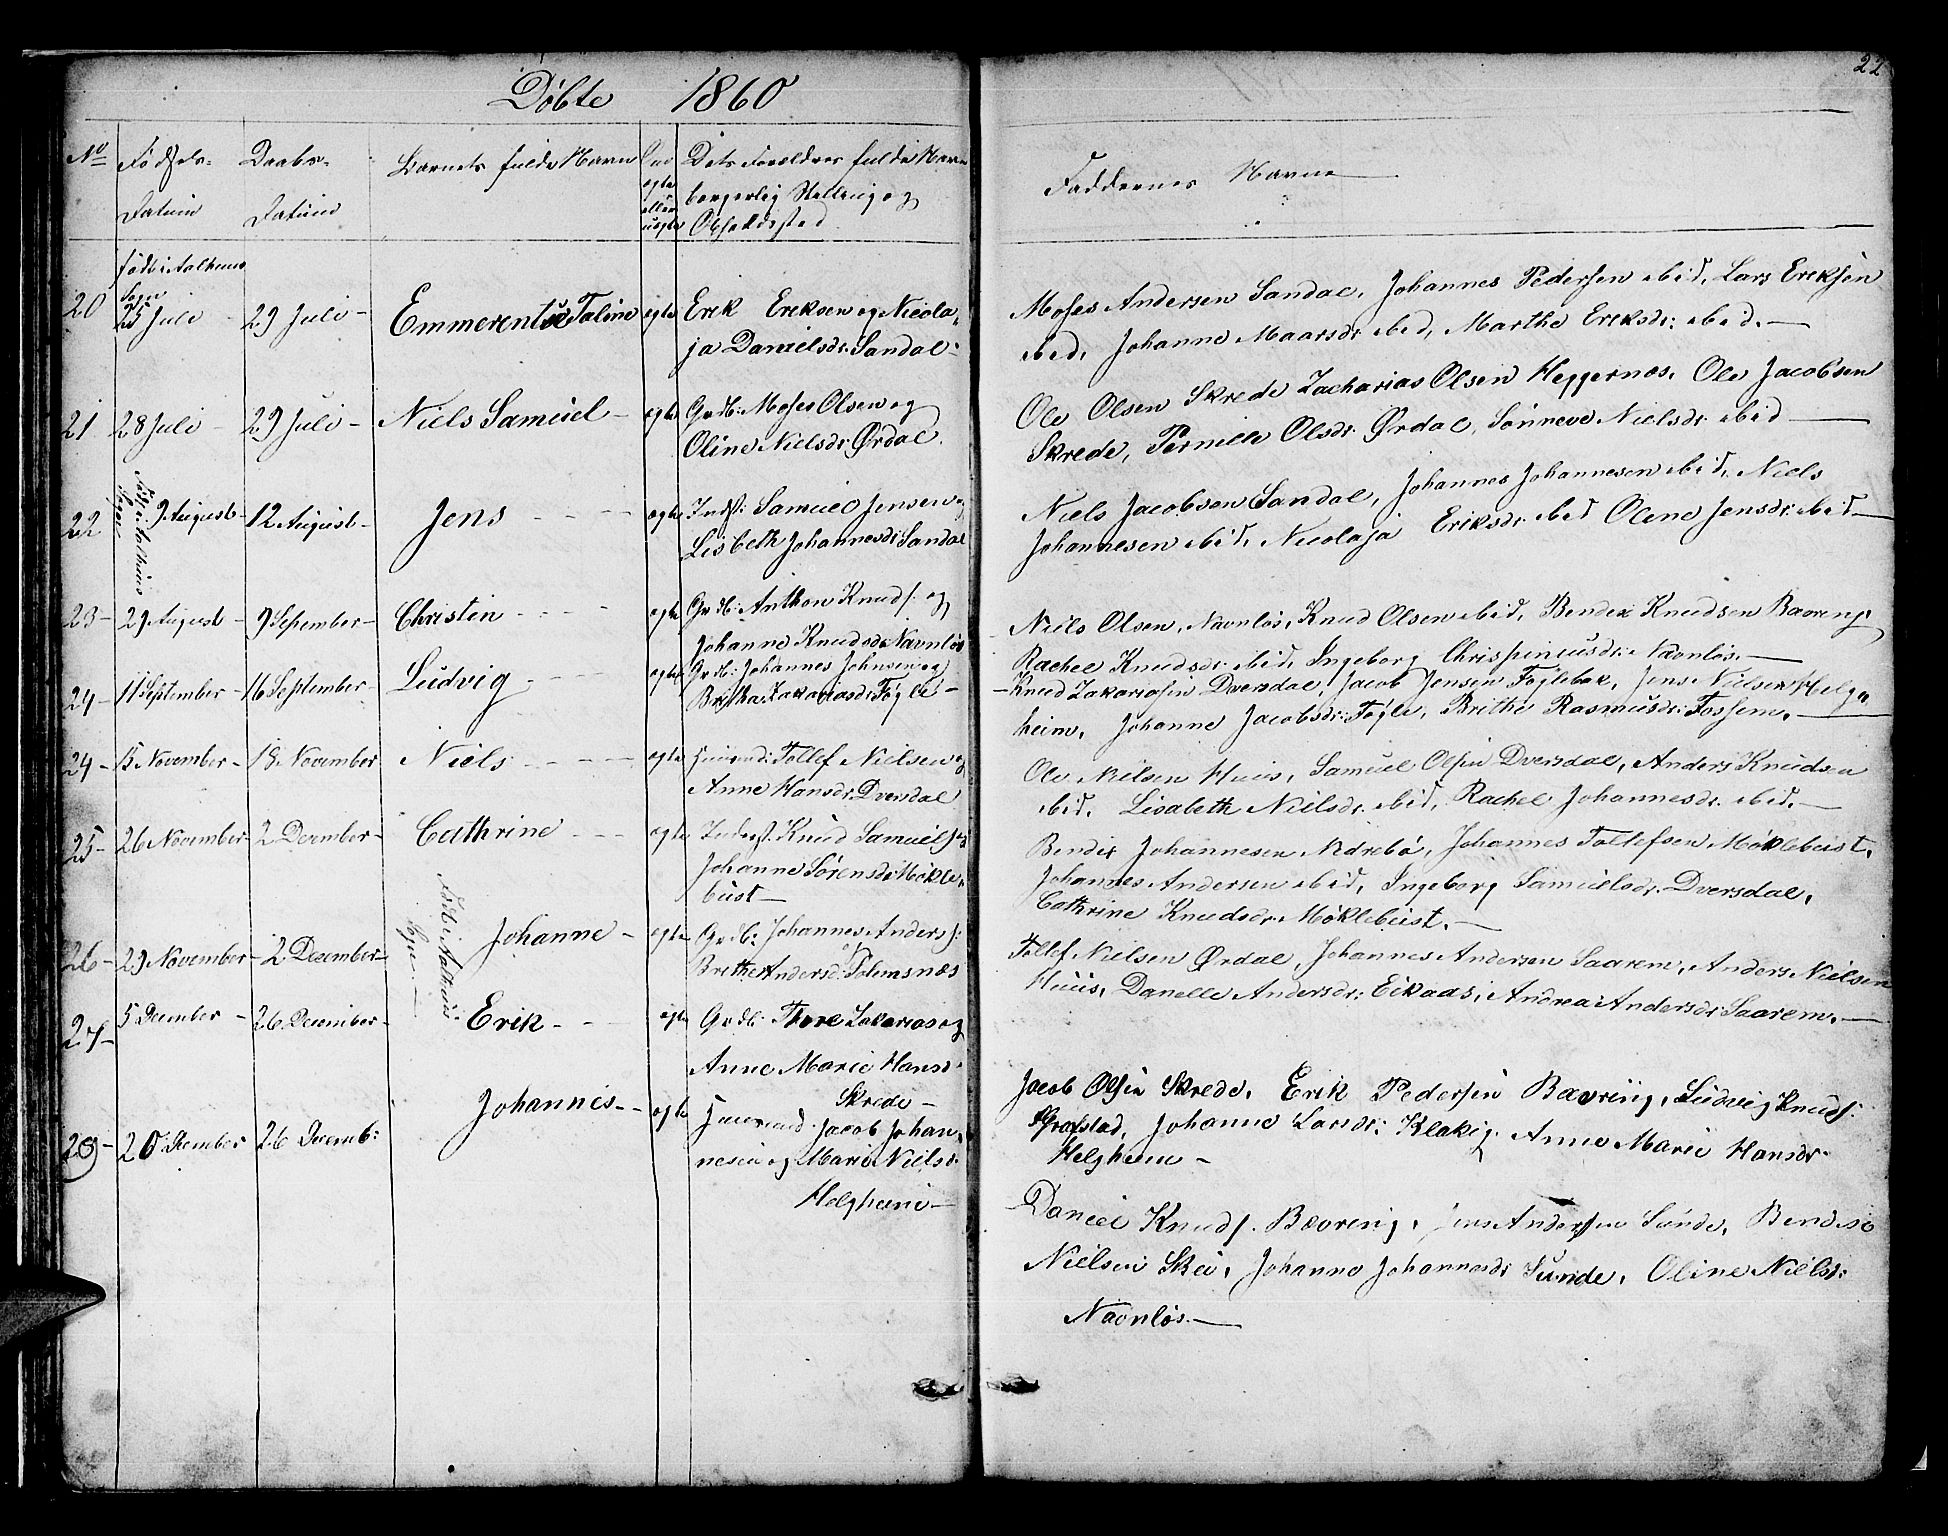 Döbte 1860
22
No
Födsels-
Datum
Daabs-
Datum
Barnets fulde Navn
Om
ægte
eller
uægte
Dets Forældres fulde Navn
borgerlig Stilling og
Opholdssted
Faddernes Navne
20
født i Aalhuus
Sogn
25 Juli
29 Juli
Emmerentse Taline
ægte
Erik Eriksen og Nicola,
ja Danielsdr: Sandal
Moses Andersen Sandal, Johannes Pedersen ibid, Lars Eriksen
ibid, Johanne Maarsdr ibid, Marthe Eriksdr: ibid.
21
28 Juli
29 Juli
Niels Samuel
ægte
Grdb: Moses Olsen og
Oline Nielsdr: Ørdal
Ole Olsen Skrede Zacharias Olsen Heggernæs, Ole Jacobsen
Skrede, Pernille Olsdr: Ørdal, Sønneve Nielsdr. ibid
22
Født i Aalhuus
Sogn
9 August
12 August
Jens
ægte
Indst: Samuel Jensen og
Lisbeth Johannesdr: Sandal
Niels Jacobsen Sandal, Johannes Johannesen ibid, Niels
Johannesen ibid, Nicolaja Eriksdr. ibid Oline Jensdr: ibid
23
29 August
9 Sepember
Christin
ægte
Grdb: Anthon Knuds: og
Johanne Knudsdr Navnløs
Niels Olsen, Navnløs, Knud Olsen ibid, Bendix Knudsen Bævring,
Rachel Knudsdr. ibid, Ingeborg Chrispinusdr. Navnløs.
24
11 September
16 September
Ludvig
ægte
Grdb: Johannes Johnsen og
Britha Zakariasdr: Føgle
Knud Zakariasen Dversdal, Jacob Jensen Føglebak, Jens Nielsen Helg,
heim, Johanne Jacobsdr: Føgle, Brithe Rasmusdr: Fossem.
24
15 November
18 November
Niels
ægte
Huusmd: Tollef Nielsen og
Anne Hansdr: Dversdal
Ole Nielsen Huus, Samuel Olsen Dversdal, Anders Knudsen
ibid. Lisabeth Nielsdr. ibid, Rachel Johannesdr. ibid.
25
26 November
2 Deember
Cathrine
ægte
Inderst. Knud Samuels: og
Johanne Sørensdr: Møkle,
bust
Bendix Johannesen Nedrebø, Johannes Tollefsen Møklebust,
Johannes Andersen ibid, Ingeborg Samuelsdr: Dversdal,
Cathrine Knudsdr. Møklebust.
26
29 November
2 Deember
Født i Aalhuus
Sogn
Johanne
ægte
Grdb: Johannes Anders:
Brithe Andersdr: Tolemsnæs
Tollef Nielsen Ørdal, Johannes Andersen Saarem, Anders Nielsen
Huus, Danelle Andersdr: Eikaas, Andrea Andersdr: Saarem.
27
5 Deember
26 Deember
Erik
ægte
Grdb: Thore Zakarias og
Anne Marie Hansd.
Skrede
Jacob Olsen Skrede, Erik Pedersen Bævring, Ludvig Knuds:
Grafstad, Johanne Larsdr: Klakeg, Anne Marie Hansdr.
Helgheim
28
20 Deember
26 Decemb:
Johannes
ægte
Huusmd. Jacob Johan,
nesen og Marie Nielsd.
Helgheim
Daniel Knuds. Bævring, Jens Andersen Sunde, Bendix
Nielsen Skei, Johanne Johannesdr Sunde, Oline Nielsd:
Navnløs